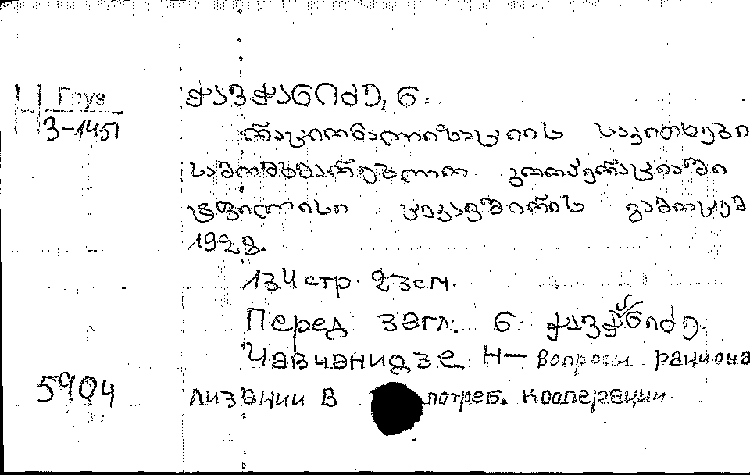 Груз
3-1451
ჭავჭანიძე, ნ.
რაციონალიზაციის საკითხები
სამომხმარებლო კოოპერაციაში
ტფილისი ცეკავშირის გამოცემ
1928.
134 стр. 23 см.
Перед загл. ნ. ჭავჭანიძე.
Чавчанидзе Н— Вопросы рациона
5904
лизации в потреб. кооперации.